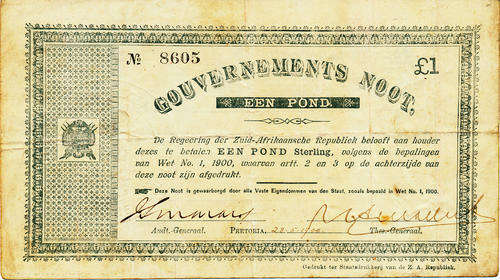 № 8605
£1
GOUVERNEMENTS NOOT,
EEN POND.
De Regeering der Zuid-Afrikaansche Republiek belooft aan houder
dezes te betalen EEN POND Sterling, volgens de bepalingen
van Wet No. 1, 1900, waarvan artt. 2 en 3 op de achterzijde van
deze noot zijn afgedrukt.
Deze Noot is gewaarborgd door alle Vaste Eigendommen van den Staat, zooals bepaald in Wet No. 1, 1900.
Audt.-Generaal.
PRETORIA,
Thes.-Generaal.
Gedrukt ter Staatsdrukkerij van de Z. A. Republiek.